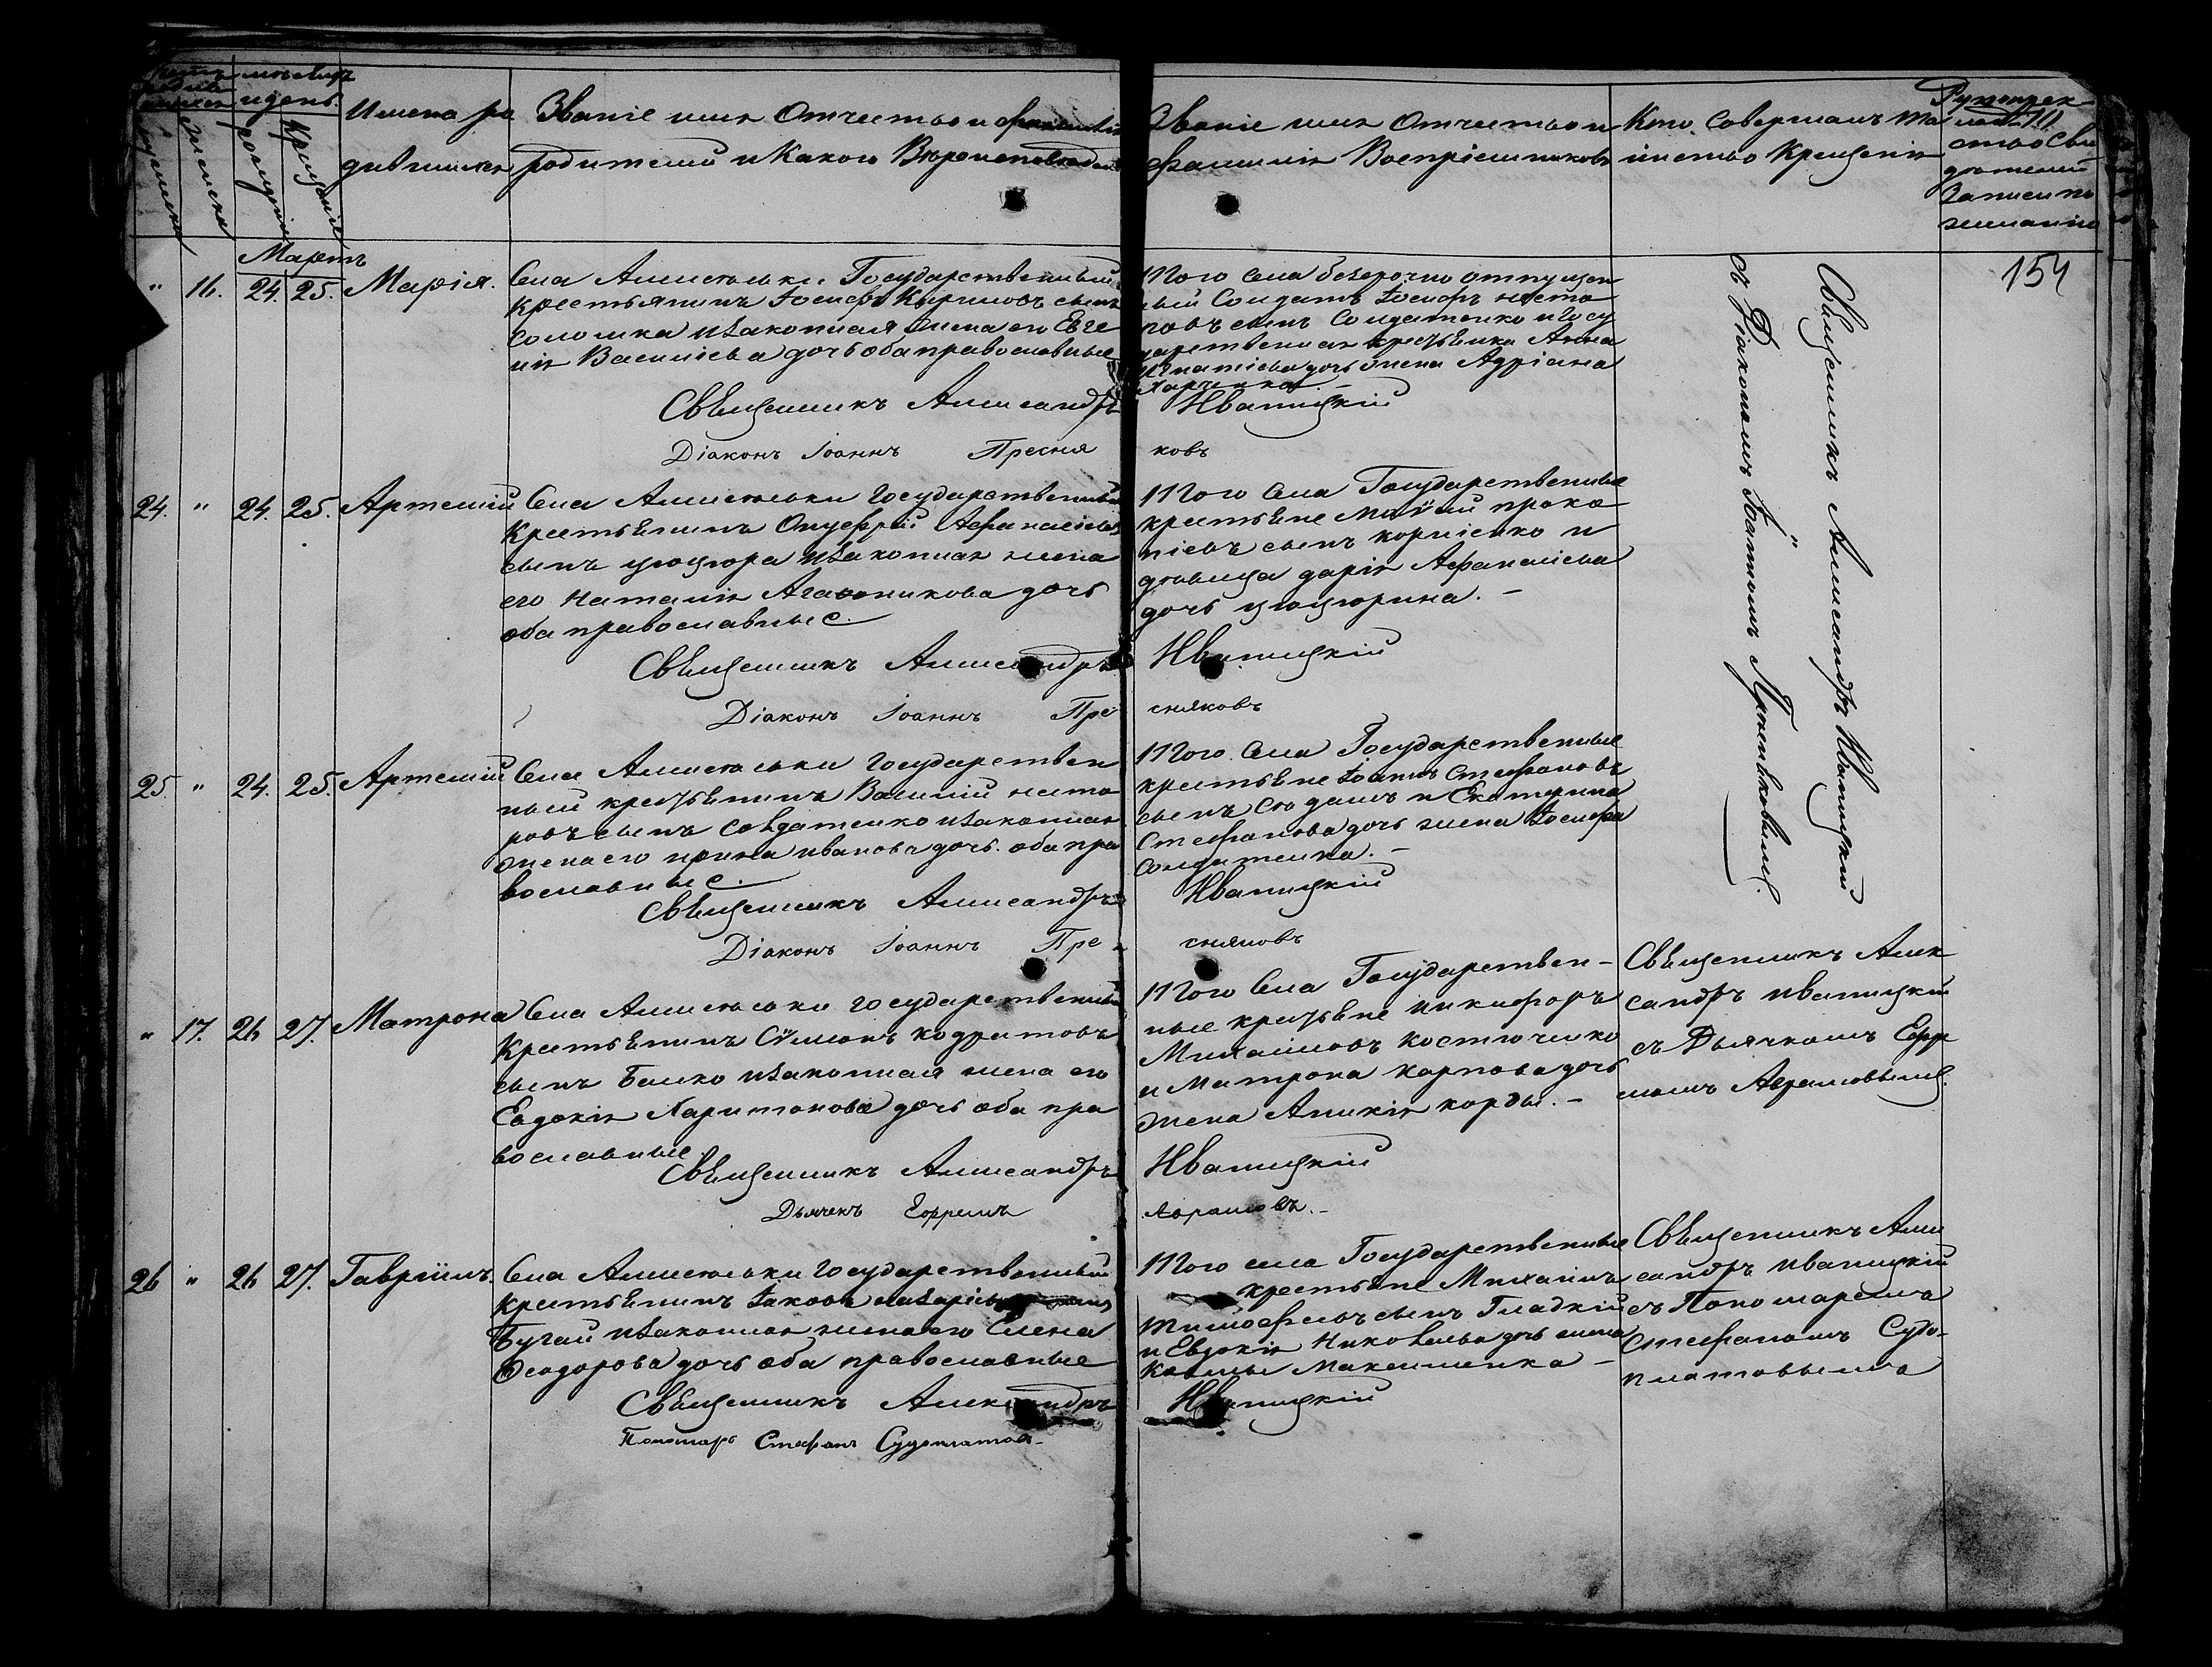 мѣсяцъ
и день.
женска
рожденія
Крещенія
Имена ро
дившихся
Званіе имя Отчество и фамилія
родителей и Какого Вѣроисповѣдан
Званіе имя Отчество и
фамилія Воспріемниковъ
Кто Совершалъ та
инство Крещенія
Рукоприк
ство Сви
дѣтелей
Записи по
желанію
154
Мартъ
" 16. 24. 25. Марія.
Села Алексѣевки Государственный
крестьянинъ Іосифъ Кириловъ сынъ
Соломка и законная жена его Евге
нія Васильева дочь оба православные
Того села безсрочно отпущен
ный Солдатъ Іосифъ
сынъ Солдатенко и Госу
дарственная крестьянка Анна
Игнатіева дочь жена Адріана
Харченка
Священникъ Александръ Иваницкій
Діаконъ Іоаннъ Пресня ковъ
Священникъ Александръ Иваницкій
съ Діакономъ Іоанномъ Пресняковымъ.
24. " 24. 25. Артемій
Села Алексѣевки Государственный
крестьянинъ Онуфрій Афанасіевъ
сынъ Цюцюра и законная жена
его Наталія Агафоникова дочь
оба православные.
Того села Государственные
крестьяне Моѵсей Проко
піевъ сынъ Корніенко и
дѣвица Дарія Афанасіева
дочь Цюцюрина. –
Священникъ Александръ Иваницкій
Діаконъ Іоаннъ Пре сняковъ
25 " 24. 25. Артемій
Села Алексѣевки Государствен
ный крестьянинъ Василій Несто
ровъ сынъ Солдатенко и законная
жена его Ирина Иванова дочь. оба пра
вославные.
Того села Государственные
крестьяне Іоаннъ Стефановъ
сынъ и Екатерина
Стефанова дочь жена Іосифа
Солдатенка. –
Священникъ Александръ Иваницкій
Діаконъ Іоаннъ Пре- сняковъ
" 17. 26 27. Матрона
Села Алексѣевки Государственный
Крестьянинъ Сѵмеонъ Кодратовъ
сынъ Башко и законная жена его
Евдокія Харитонова дочь оба пра
вославные.
Того села Государствен-
ные крестьяне Никифоръ
Михайловъ Костюченко
и Матрона Карпова дочь
жена Аникія Корды. –
Священникъ Алек
сандръ Иваницкій
съ Дьячкомъ Ефре
момъ Аврамовымъ.
Священникъ Александръ Иваницкій
Дьячекъ Ефремъ Аврамовъ. –
26 " 26 27. Гавріилъ.
Села Алексѣевки Государственный
крестьянинъ Іаковъ Назаріевъ
Бугай и законная жена его Елена
Ѳеодорова дочь оба православные
Того села Государственные
крестьяне Михаилъ
Тимофеевъ сынъ Гладкій
и Евдокія дочь жена
Максименка –
Священникъ Алек
сандръ Иваницкій
съ Пономаремъ
Стефаномъ Судо-
платовымъ
Священникъ Александръ Иваницкій
Пономарь Стефанъ Судоплатовъ